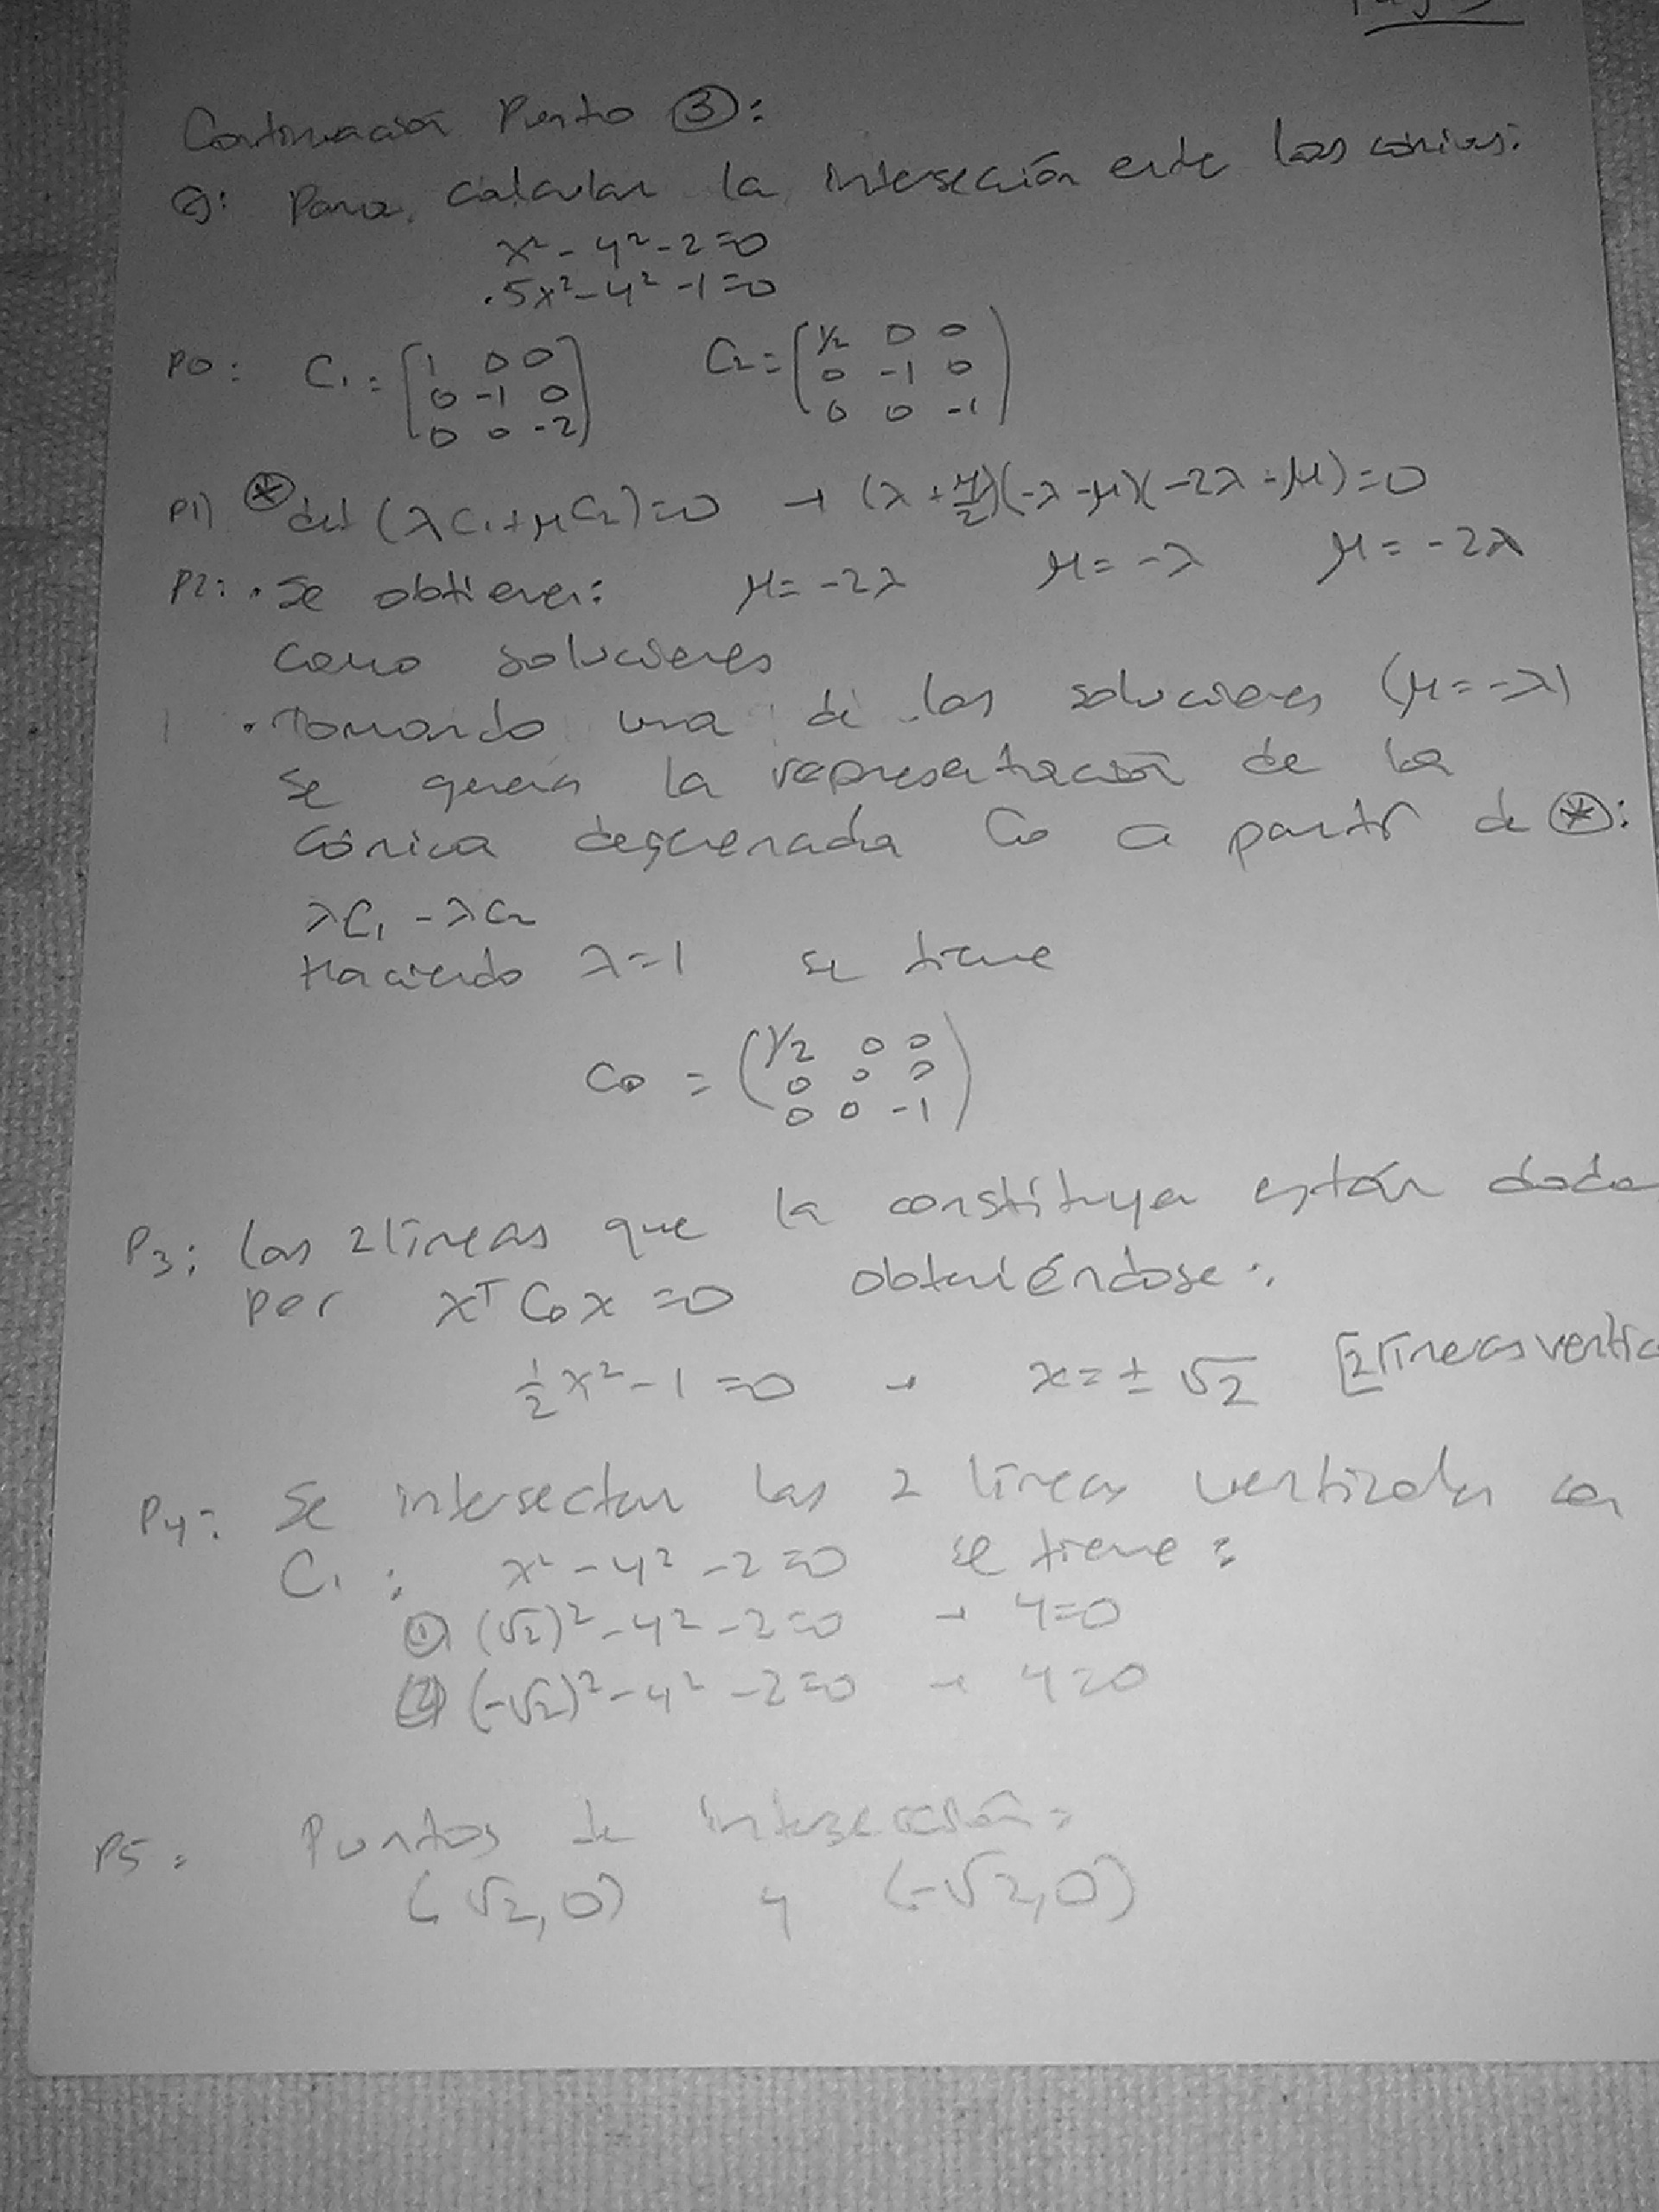 Continuación Punto ③:
Para calcular la interseción entre las cónicas:
x² - y² - 2 = 0
.5x² - y² - 1 = 0
P0: C₁ = [1 0 0 C₂ = (1/2 0 0
0 -1 0 0 -1 0
0 0 -2] 0 0 -1)
P1) ⊛ det (λC₁ + μC₂) = 0 → (λ + μ/2)(-λ - μ)(-2λ - μ) = 0
P2: · Se obtienen: μ = -2λ μ = -λ μ = -2λ
como soluciones
· Tomando una de las soluciones (μ = -λ)
se genera la representación de la
cónica degenerada C₀ a partir de ⊛:
λC₁ - λC₂
Haciendo λ = 1 se tiene
C₀ = (1/2 0 0
0 0 0
0 0 -1)
P3: Las 2 líneas que la constituyen están dada
por xᵀ C₀ x = 0 obteniéndose:
1/2 x² - 1 = 0 → x = ± √2 [2 líneas vertic
P4: Se intersectan las 2 líneas verticales con
C₁: x² - y² - 2 = 0 se tiene:
① (√2)² - y² - 2 = 0 → y = 0
② (-√2)² - y² - 2 = 0 → y = 0
P5: Puntos de intersección:
(√2, 0) y (-√2, 0)